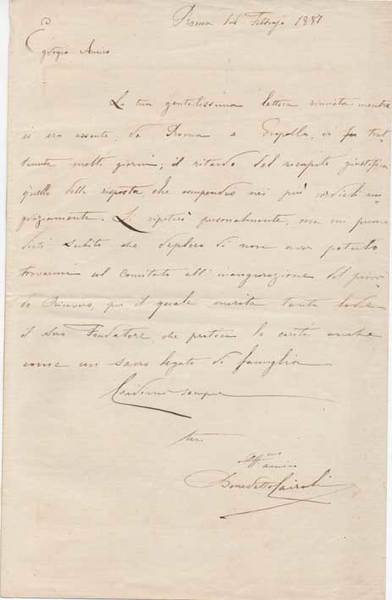 Roma 14 Febbrajo 1887
Egregio Amico
La tua gentilissima lettera mentre
io ero assente da Roma a ivi fu trat
tenuta molti giorni; il ritardo del recapito giustifica
quello della risposta, che comprendo nei più cordiali rin
graziamenti. Li ripeterò personalmente, ma mi preme
dirti subito che deploro di non aver potuto
trovarmi al Comitato all'inaugurazione del pio
lo per il quale merita tanta lode
il suo Fondatore che pratica la carità anche
come un sacro legato di famiglia
Credimi sempre
tuo
Aff.mo amico
Benedetto Cairoli